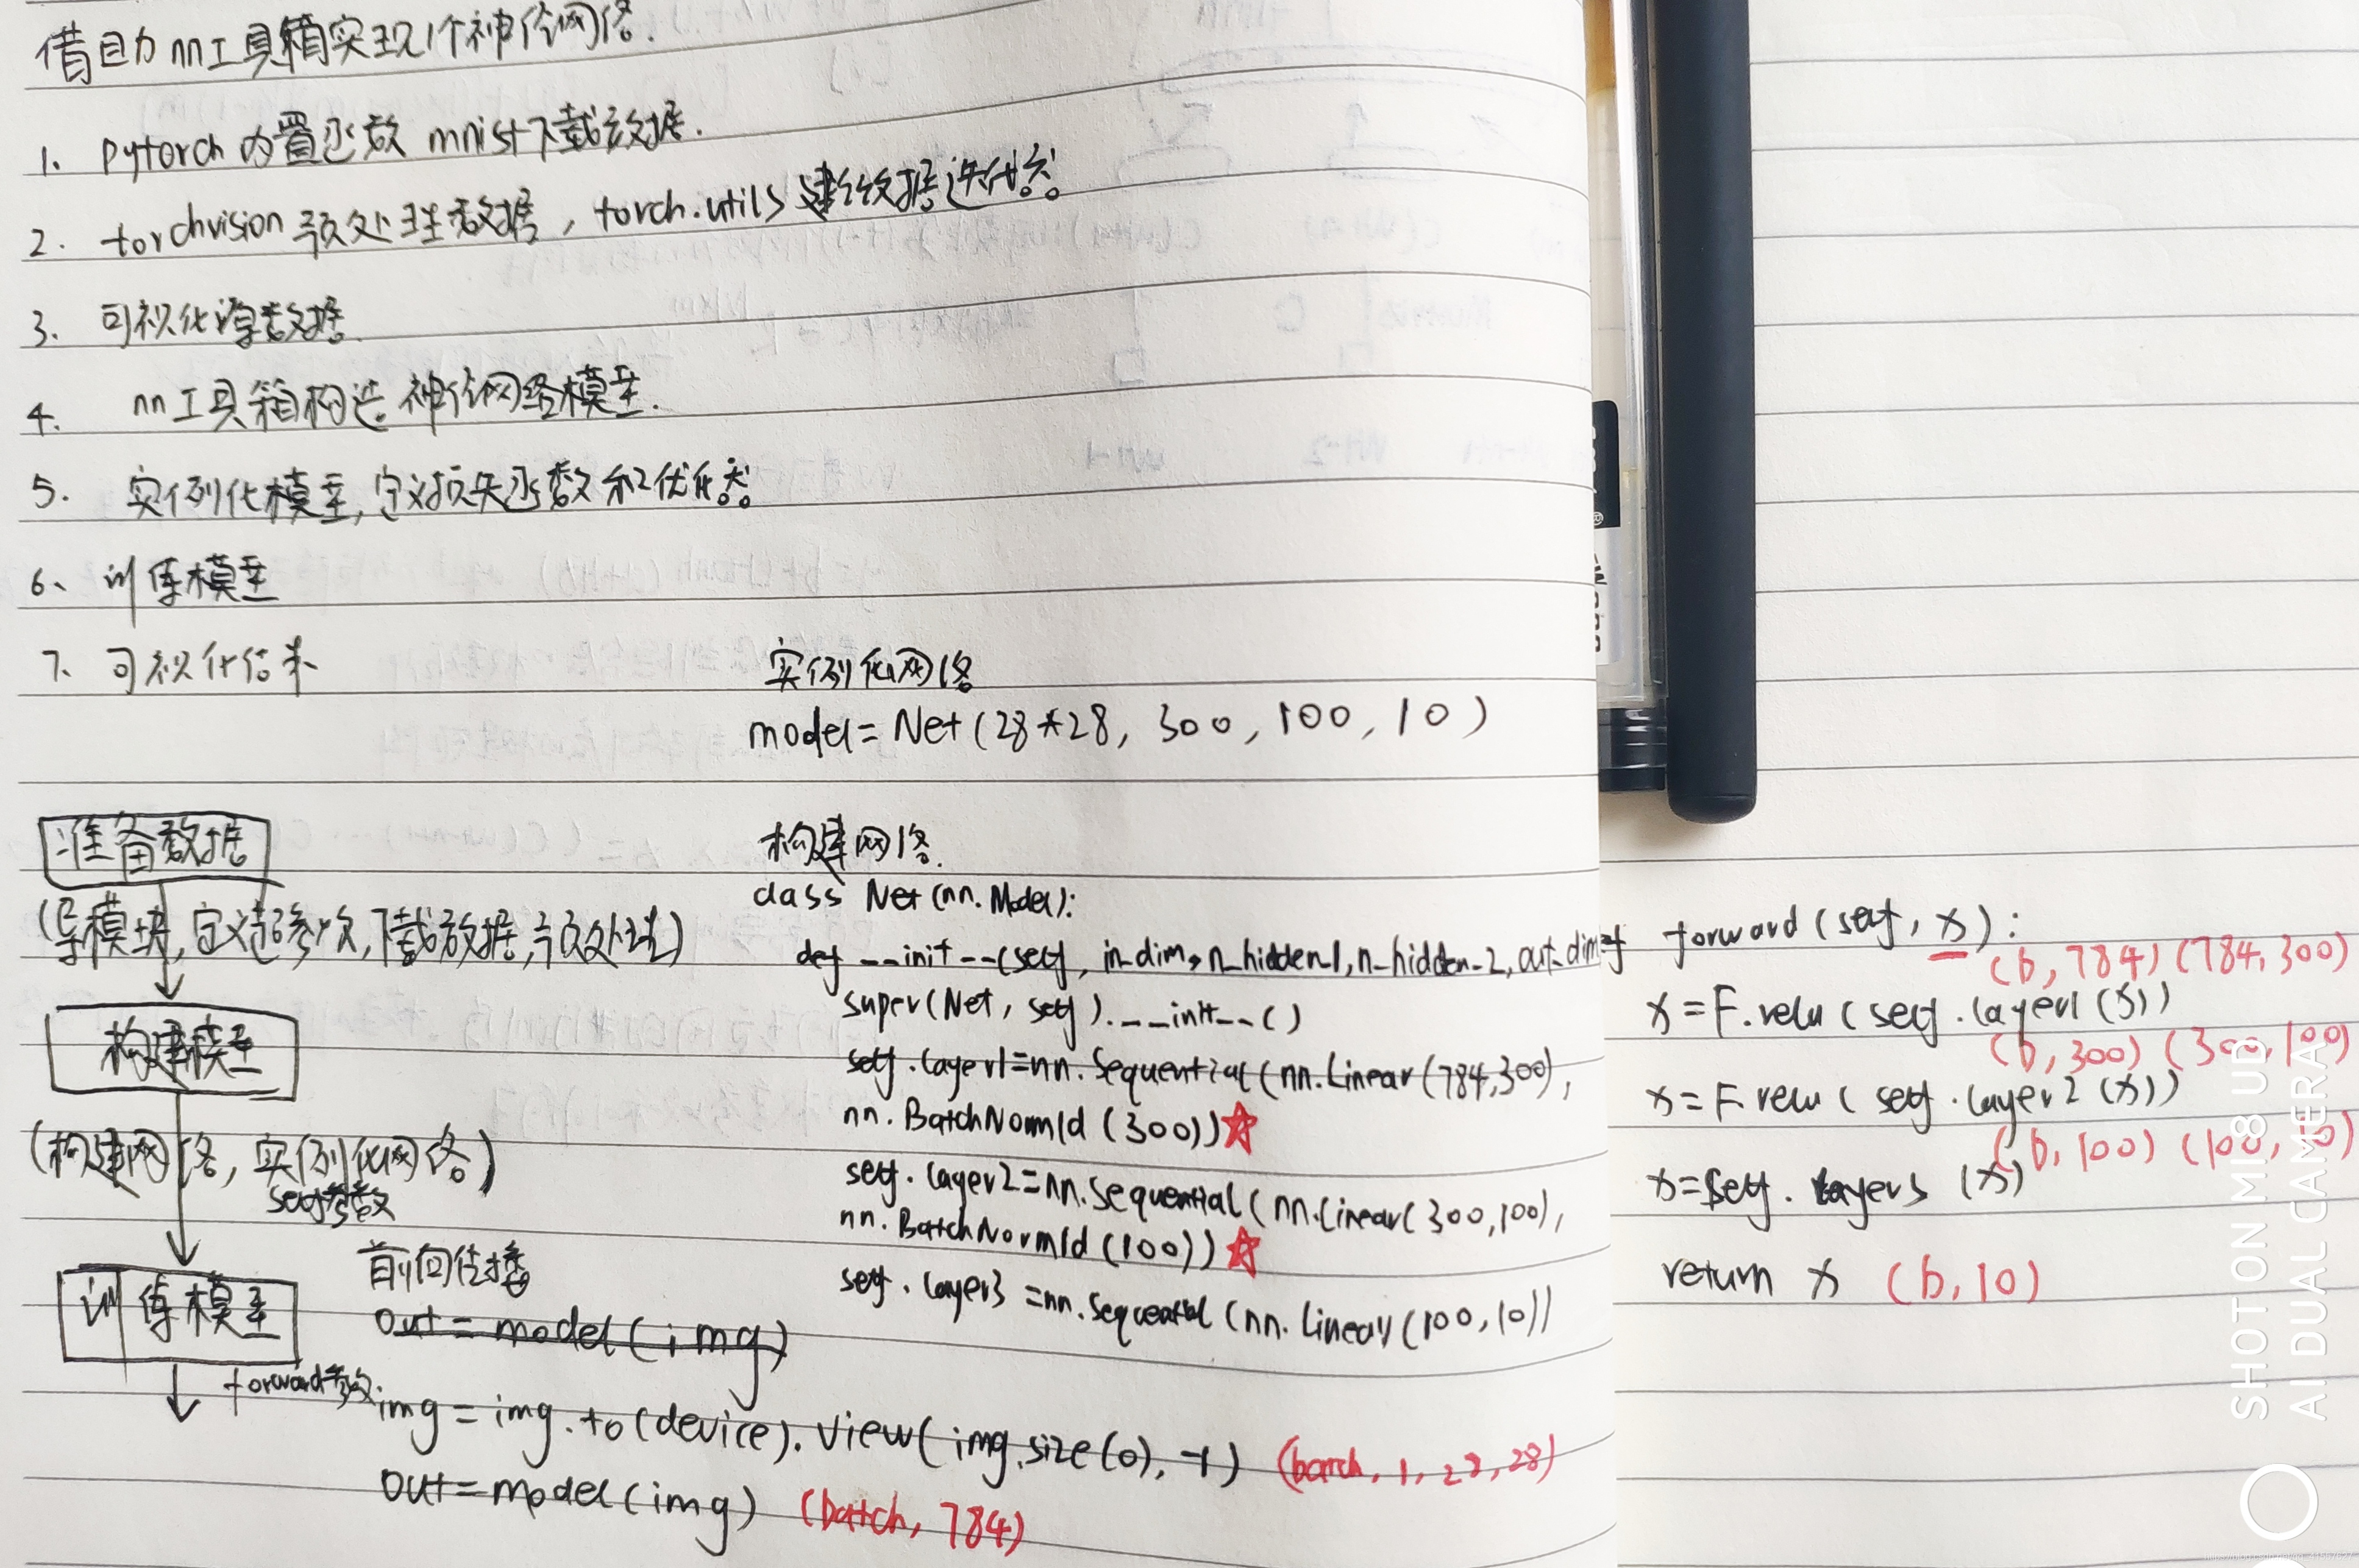 借助nn工具箱实现1个神经网络.
1. Pytorch 内置函数 mnist下载数据.
2. torchvision 预处理数据, torch.utils 建络数据迭代器
3. 可视化源数据.
4. nn工具箱构造神经网络模型.
5. 实例化模型,定义损失函数和优化器
6、训练模型
7、可视化结果
实例化网络
model = Net(28*28, 300, 100, 10)
准备数据
(导模块,定义超参数,下载数据,预处理)
构建模型
(构建网络,实例化网络)
self参数
训练模型
forward参数.
构建网络.
class Net(nn.Model):
def __init__(self, in_dim, n_hidden_1, n_hidden_2, out_dim
super(Net, self).__init__()
self.layer1=nn.Sequential(nn.Linear(784,300),
nn.BatchNorm1d(300))
self.layer2=nn.Sequential(nn.Linear(300,100),
nn.BatchNorm1d(100))
self.layer3 =nn.Sequential(nn.Linear(100,10))
前向传播
out = model(img)
img = img.to(device).view(img.size(0),-1) (batch, 1, 28, 28)
out=model(img) (batch, 784)
def forward(self, x):
(b, 784) (784, 300)
x = F.relu(self.layer1(x))
(b, 300) (300, 100)
x = F.relu(self.layer2(x))
(b, 100) (100, 10)
x=self.layer3(x)
return x (b, 10)
SHOT ON MI 8 UD
AI DUAL CAMERA